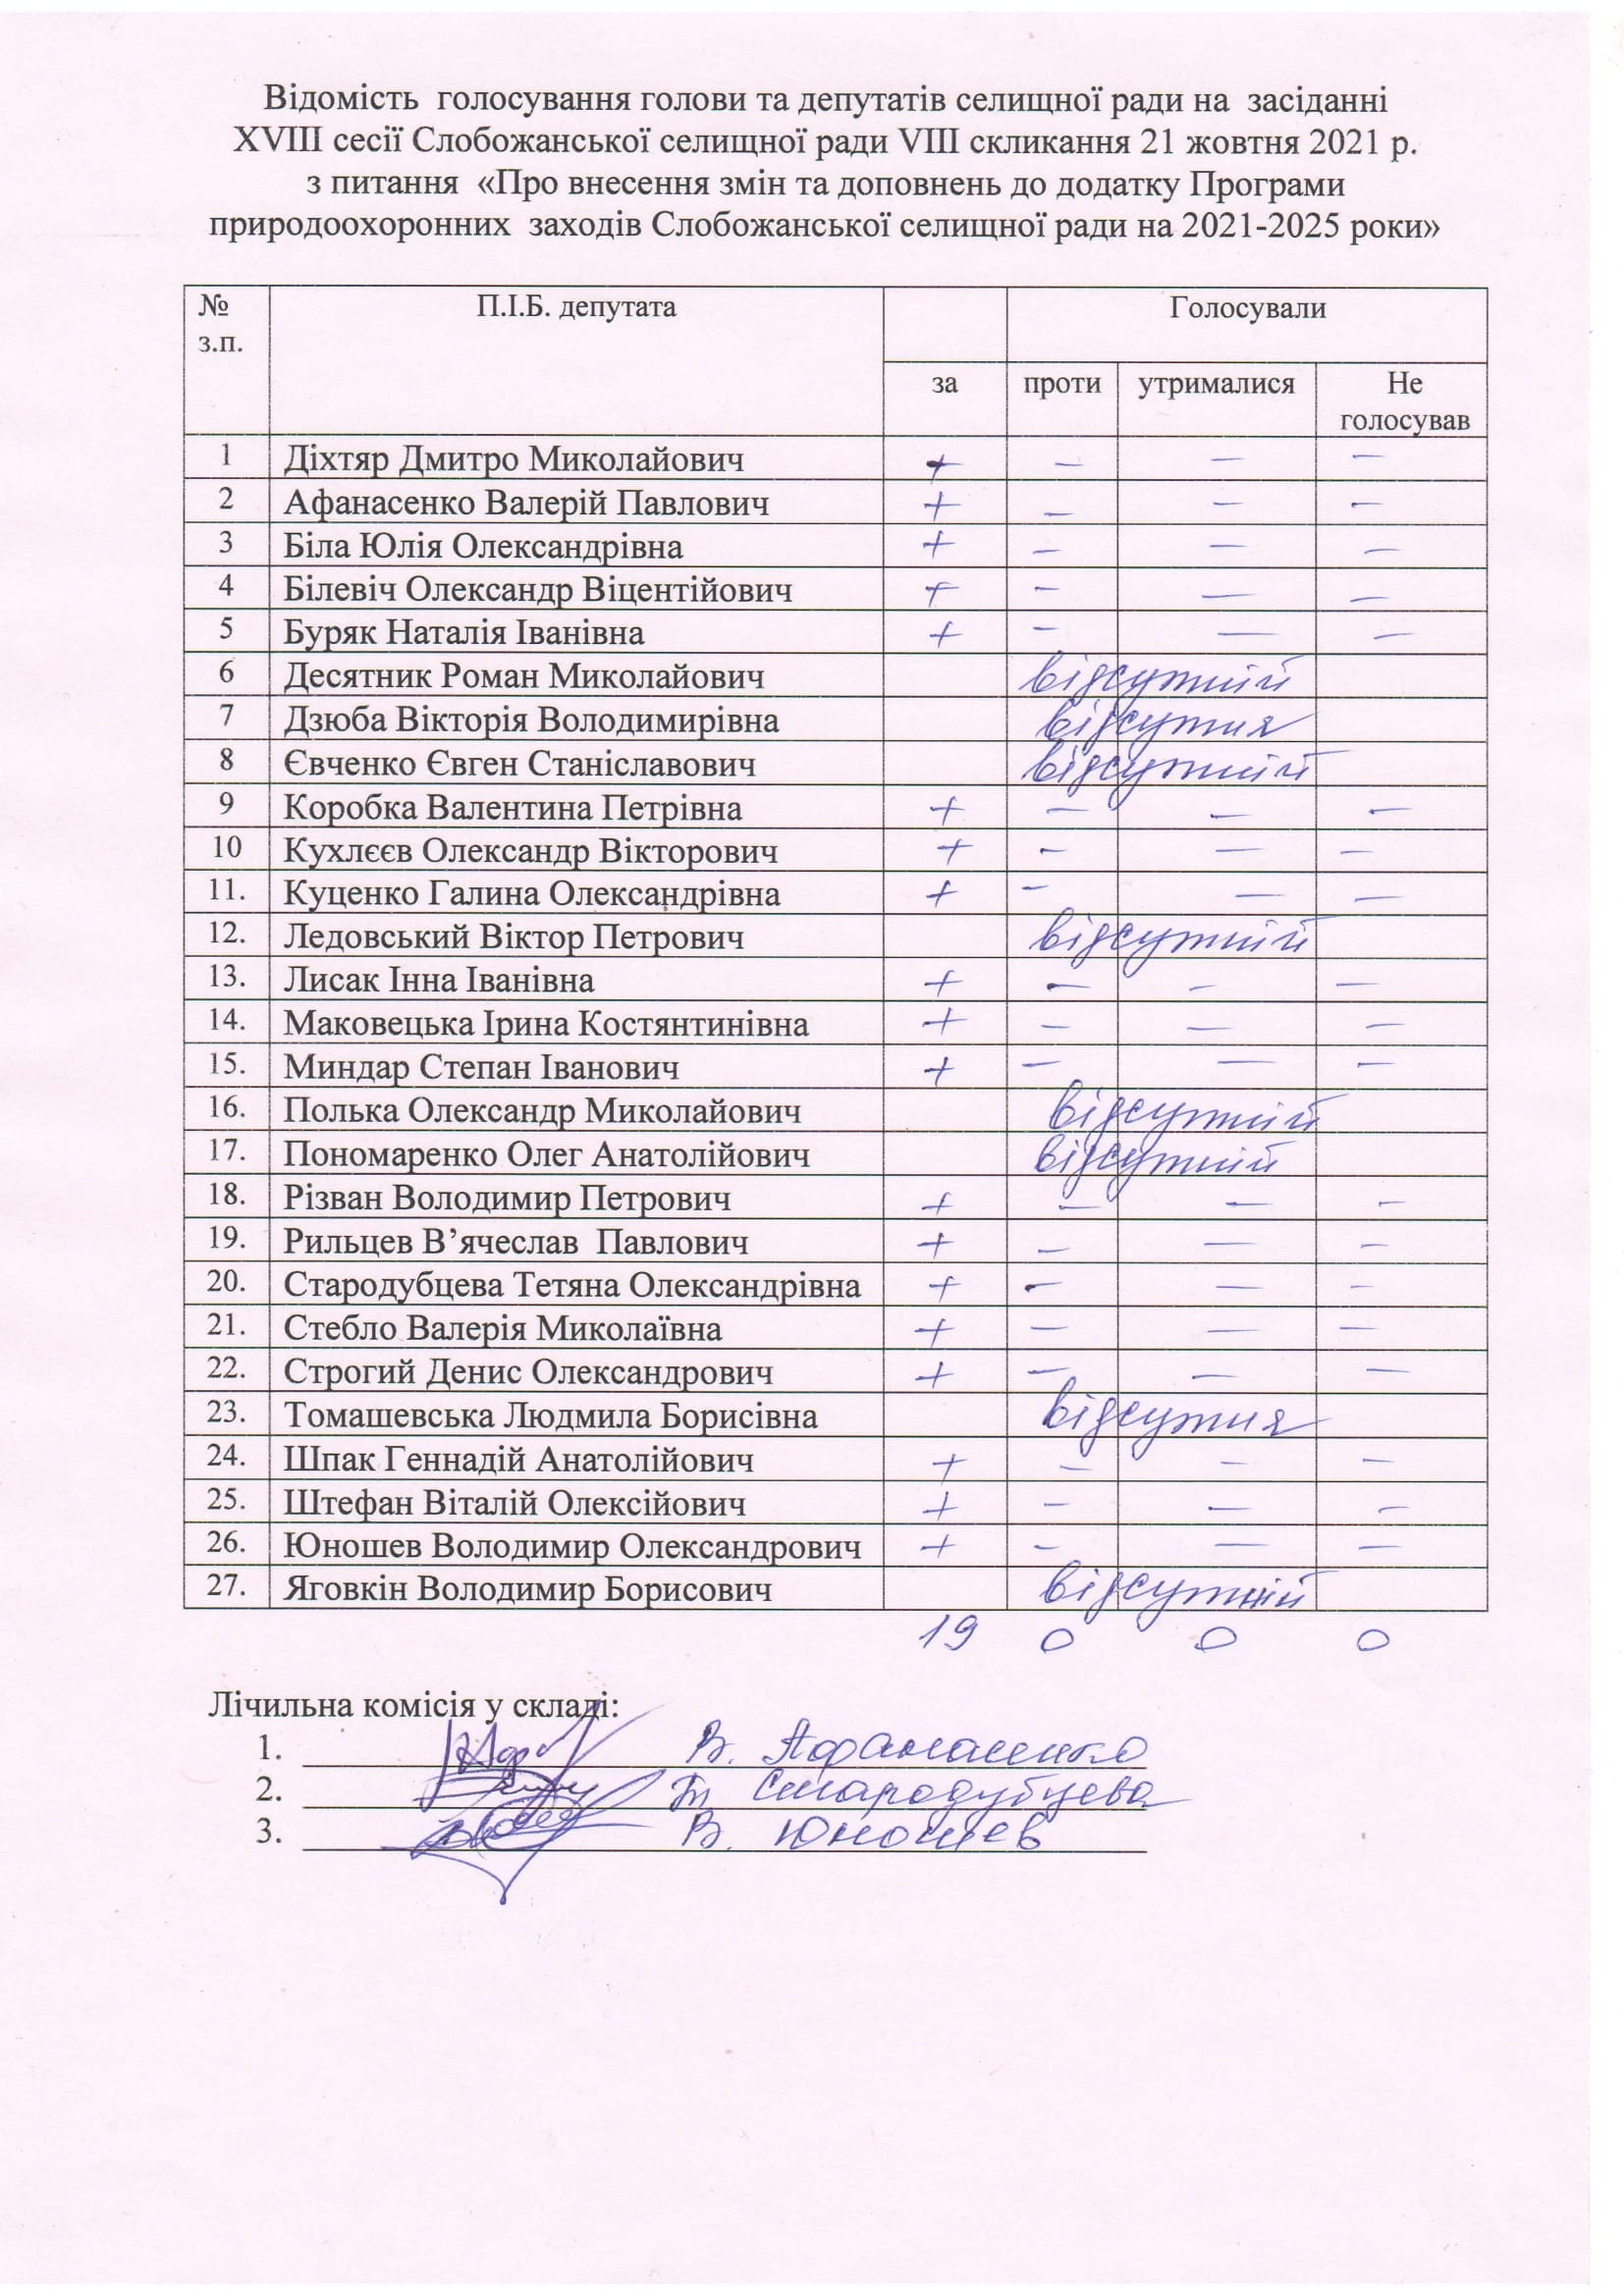 Відомість голосування голови та депутатів селищної ради на засіданні
XVIII сесії Слобожанської селищної ради VIII скликання 21 жовтня 2021 р.
з питання «Про внесення змін та доповнень до додатку Програми
природоохоронних заходів Слобожанської селищної ради на 2021-2025 роки»
№ з.п. П.І.Б. депутата Голосували
за проти утрималися Не голосував
1 Діхтяр Дмитро Миколайович + – – –
2 Афанасенко Валерій Павлович + – – –
3 Біла Юлія Олександрівна + – – –
4 Білевіч Олександр Віцентійович + – – –
5 Буряк Наталія Іванівна + – – –
6 Десятник Роман Миколайович відсутній
7 Дзюба Вікторія Володимирівна відсутня
8 Євченко Євген Станіславович відсутній
9 Коробка Валентина Петрівна + – – –
10 Кухлєєв Олександр Вікторович + – – –
11. Куценко Галина Олександрівна + – – –
12. Ледовський Віктор Петрович відсутній
13. Лисак Інна Іванівна + – – –
14. Маковецька Ірина Костянтинівна + – – –
15. Миндар Степан Іванович + – – –
16. Полька Олександр Миколайович відсутній
17. Пономаренко Олег Анатолійович відсутній
18. Різван Володимир Петрович + – – –
19. Рильцев В’ячеслав Павлович + – – –
20. Стародубцева Тетяна Олександрівна + – – –
21. Стебло Валерія Миколаївна + – – –
22. Строгий Денис Олександрович + – – –
23. Томашевська Людмила Борисівна відсутня
24. Шпак Геннадій Анатолійович + – – –
25. Штефан Віталій Олексійович + – – –
26. Юношев Володимир Олександрович + – – –
27. Яговкін Володимир Борисович відсутній
19 0 0 0
Лічильна комісія у складі:
1. В. Афанасенко
2. Т. Стародубцева
3. В. Юношев